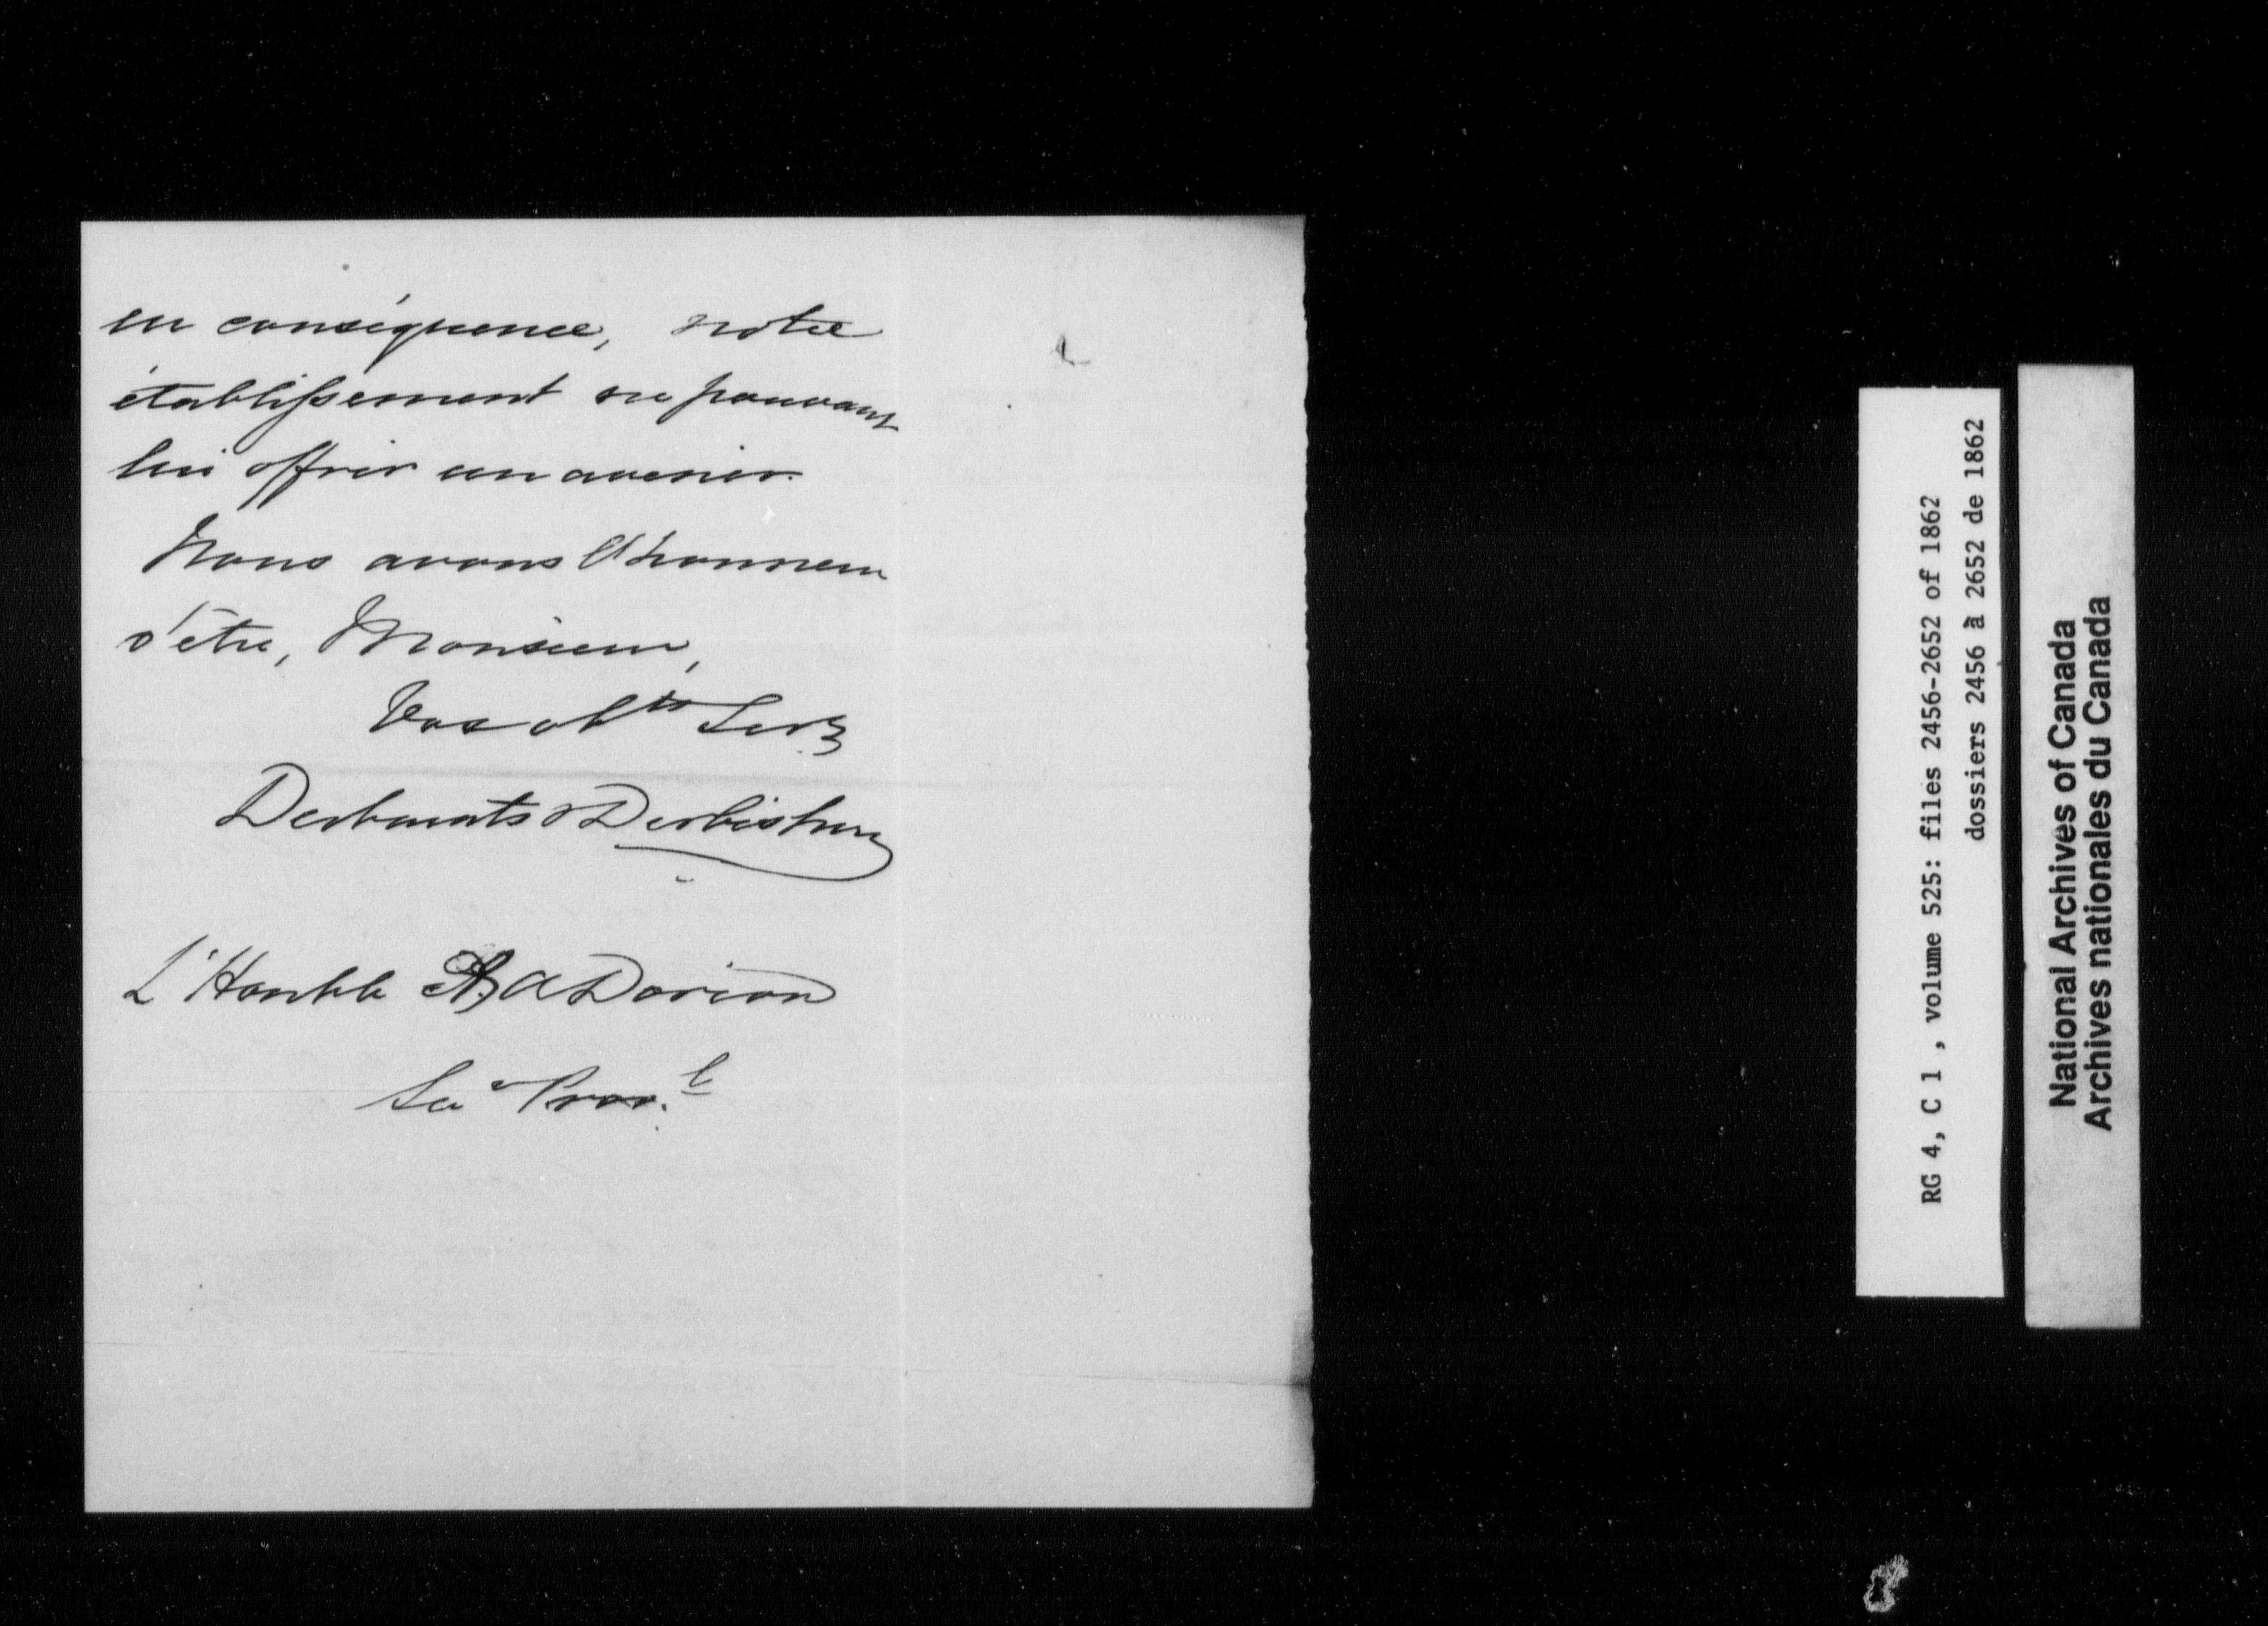 en conséquence, notre
établissement ne pouvant
lui offrir un avenir.
Nous avons l'honneur
d'être, Monsieur,
Vos obts Servs
Desbarats & Derbishire
L'Honble A A Dorion
Sec Provl
RG 4, C 1 , volume 525: files 2456-2652 of 1862
dossiers 2456 à 2652 de 1862
National Archives of Canada
Archives nationales du Canada